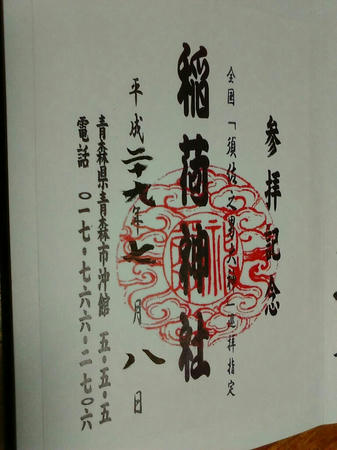 参拝記念
全国「須佐之男大神」巡拝指定
稲荷神社
平成二十九年七月八日
青森県青森市沖館 五・五・五
電話 〇一七・七六六・二七〇六